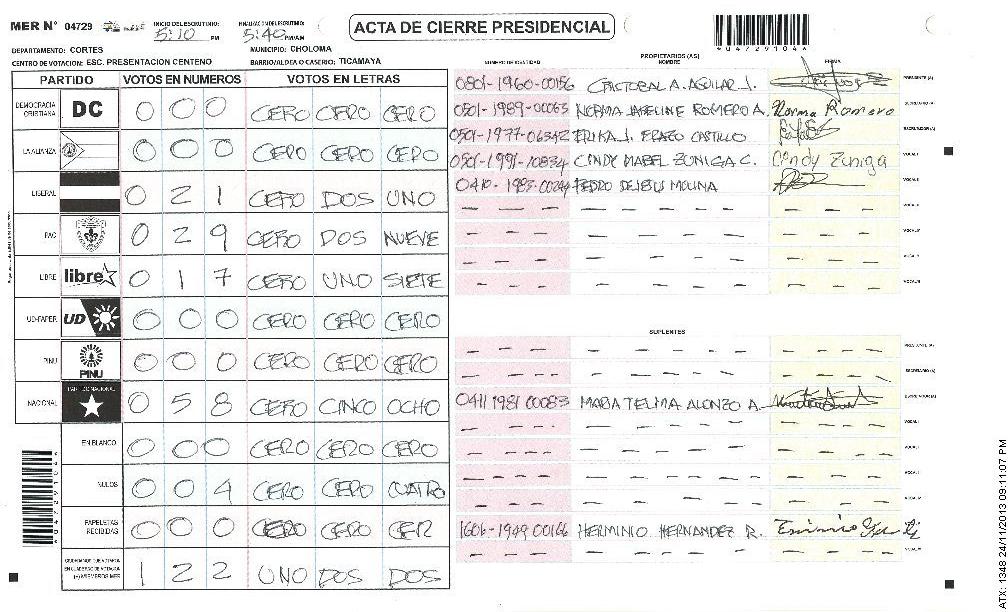 MER N° 04729 INICIO DEL ESCRUTINIO: 5:10 PM FINALIZACION DEL ESCRUTINIO: 5:40 PM/AM ACTA DE CIERRE PRESIDENCIAL
DEPARTAMENTO: CORTES MUNICIPIO: CHOLOMA
CENTRO DE VOTACION: ESC. PRESENTACION CENTENO BARRIO/ALDEA O CASERIO: TICAMAYA
PARTIDO VOTOS EN NUMEROS VOTOS EN LETRAS
DEMOCRACIA CRISTIANA DC 0 0 0 CERO CERO CERO
LA ALIANZA 0 0 0 CERO CERO CERO
LIBERAL 0 2 1 CERO DOS UNO
PAC 0 2 9 CERO DOS NUEVE
LIBRE libre 0 1 7 CERO UNO SIETE
UD-FAPER UD 0 0 0 CERO CERO CERO
PINU PINU 0 0 0 CERO CERO CERO
NACIONAL PARTIDO NACIONAL 0 5 8 CERO CINCO OCHO
EN BLANCO 0 0 0 CERO CERO CERO
NULOS 0 0 4 CERO CERO CUATRO
PAPELETAS RECIBIDAS 0 0 0 CERO CERO CER
1 2 2 UNO DOS DOS
PROPIETARIOS (AS)
NUMERO DE IDENTIDAD NOMBRE FIRMA
0801-1960-00156 A. AGUILAR J. PRESIDENTE (A)
0501-1989-00063 NORMA ROMERO A. Norma Romero SECRETARIO (A)
0501-1977-06342 ERIKA J. ERAZO CASTILLO ESCRUTADOR (A)
0501-1991-10834 CINDY MABEL ZUNIGA C. Cindy Zuniga VOCAL I
0410-1983-00244 PEDRO DE JESUS MOLINA VOCAL II
SUPLENTES
PRESIDENTE (A)
SECRETARIO (A)
0411 1981 00083 MARIA TELMA ALONZO A. ESCRUTADOR (A)
1606-1949 00166 HERMINIO HERNANDEZ R.
ATX: 1348 24/11/2013 09:11:07 PM